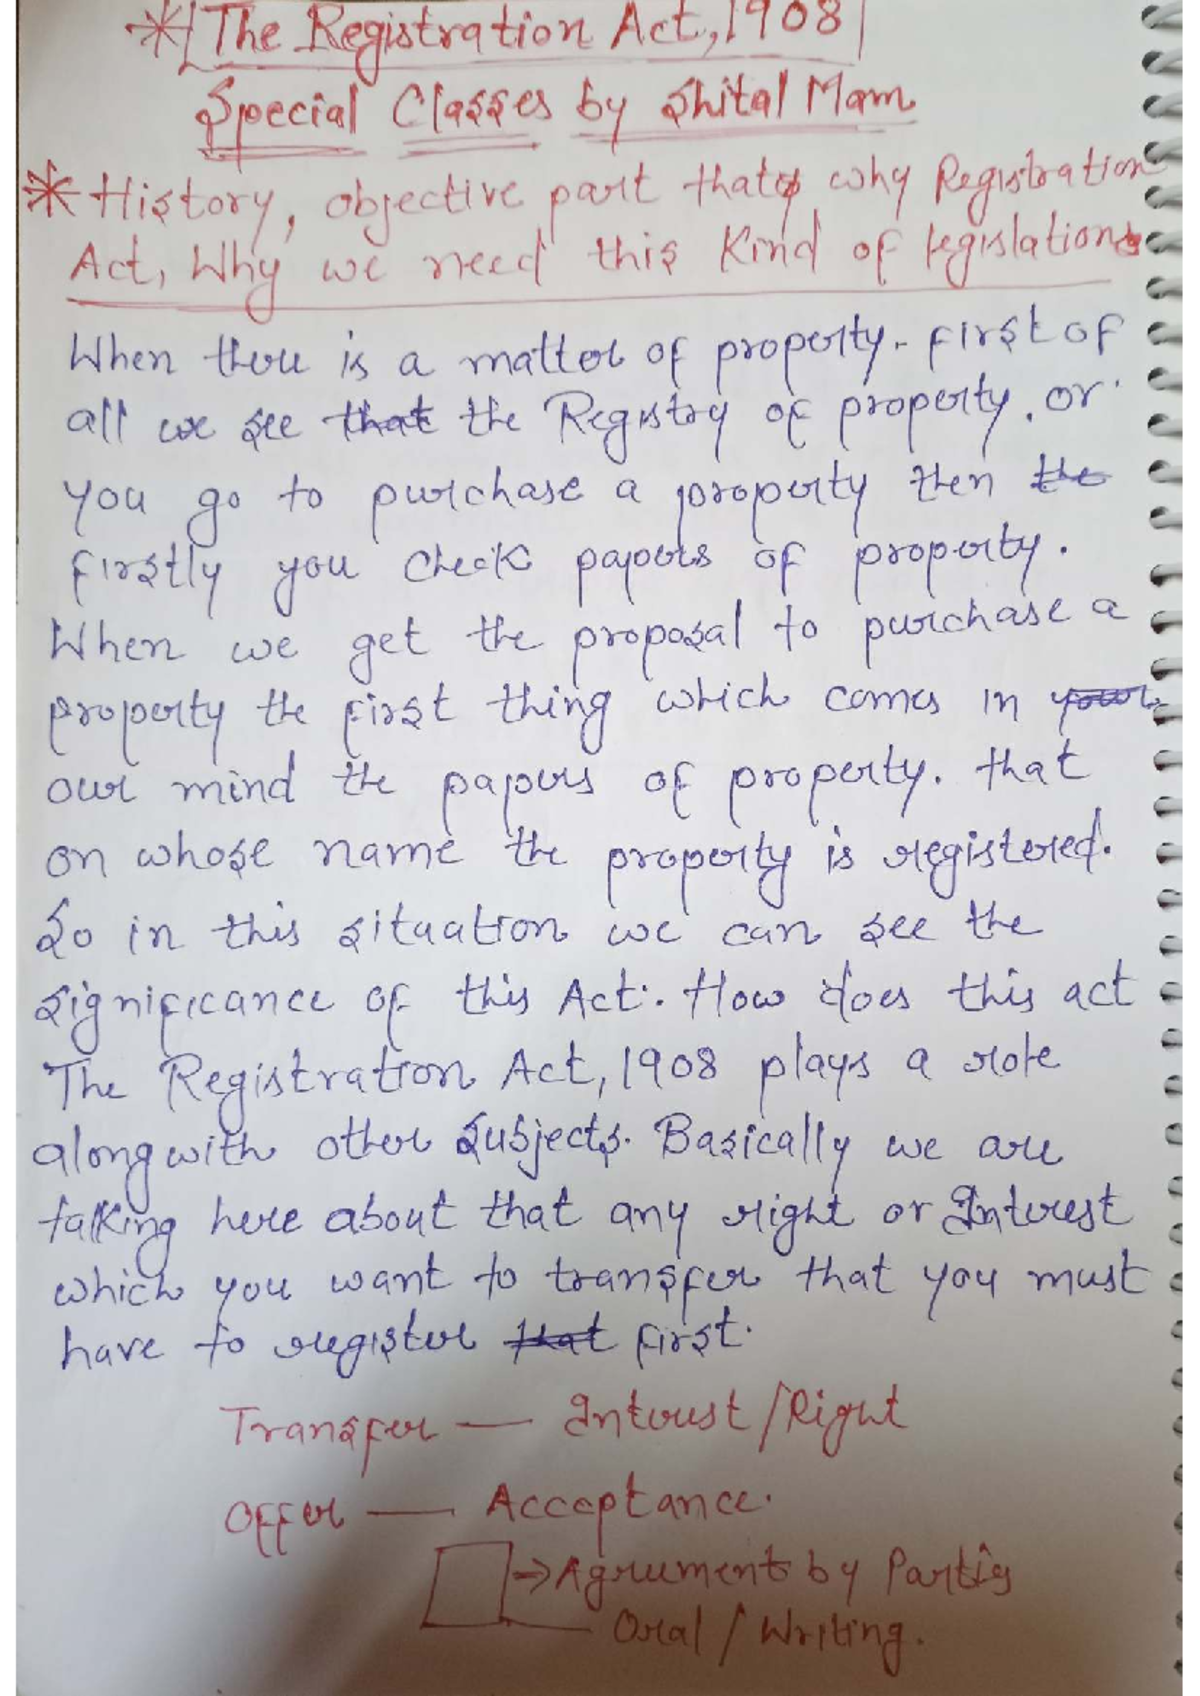 * The Registration Act, 1908
Special Classes by Shital Mam
* History, objective part that why Registration
Act, Why we need this Kind of legislation
When there is a matter of property. first of
all we see that the Registry of property. or
you go to purchase a property then the
firstly you check papers of property.
When we get the proposal to purchase a
property the first thing which comes in your
our mind the papers of property. that
on whose name the property is registered.
So in this situation we can see the
significance of this Act. How does this act
The Registration Act, 1908 plays a role
alongwith other subjects. Basically we are
talking here about that any right or Interest
which you want to transfer that you must
have to register that first.
Transfer — Interest/Right
Offer — Acceptance.
→ Agreement by Parties
Oral / Writing.